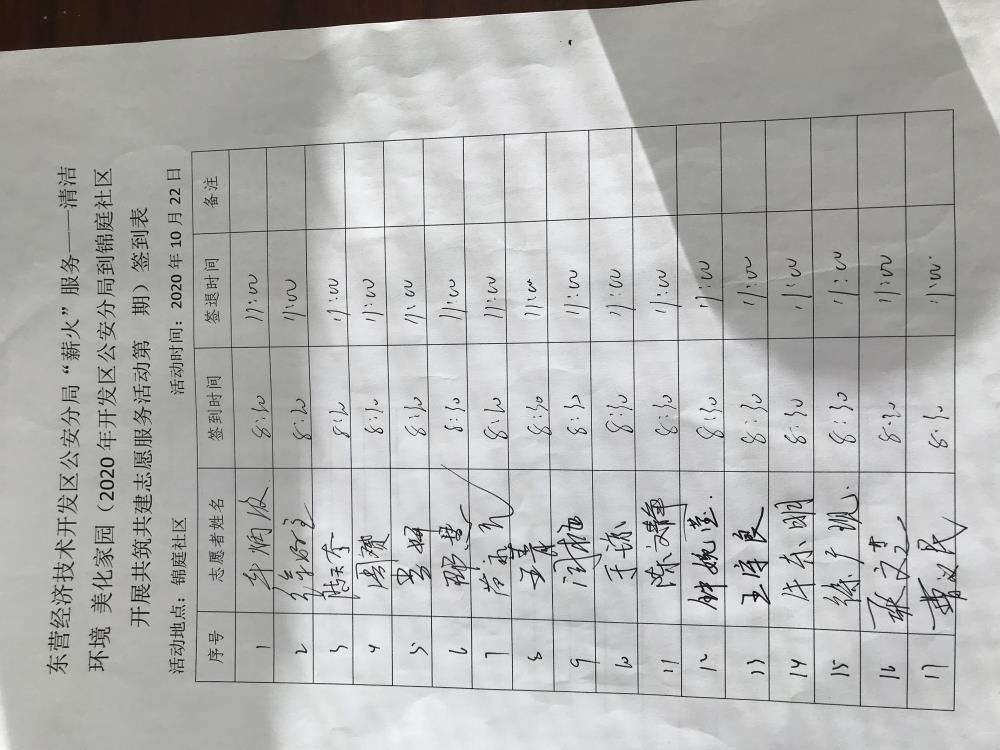 东营经济技术开发区公安分局“薪火”服务——清洁
环境 美化家园（2020年开发区公安分局到锦庭社区
开展共筑共建志愿服务活动第 期）签到表
活动地点：锦庭社区 活动时间：2020年10月22日
序号 志愿者姓名 签到时间 签退时间 备注
1 8:30 11:00
2 8:30 11:00
3 8:30 11:00
4 周赟 8:30 11:00
5 8:30 11:00
6 8:30 11:00
7 8:30 11:00
8 王青 8:30 11:00
9 8:30 11:00
10 8:30 11:00
11 陈文静 8:30 11:00
12 钟婉莹 8:30 11:00
13 王学良 8:30 11:00
14 牛东明 8:30 11:00
15 徐广凯 8:30 11:00
16 8:30 11:00
17 曹汉民 8:30 11:00